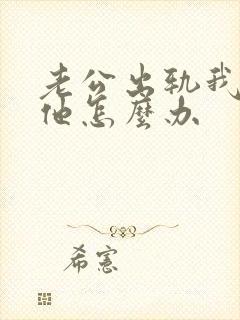 老公出轨我
他怎麼办
希宪